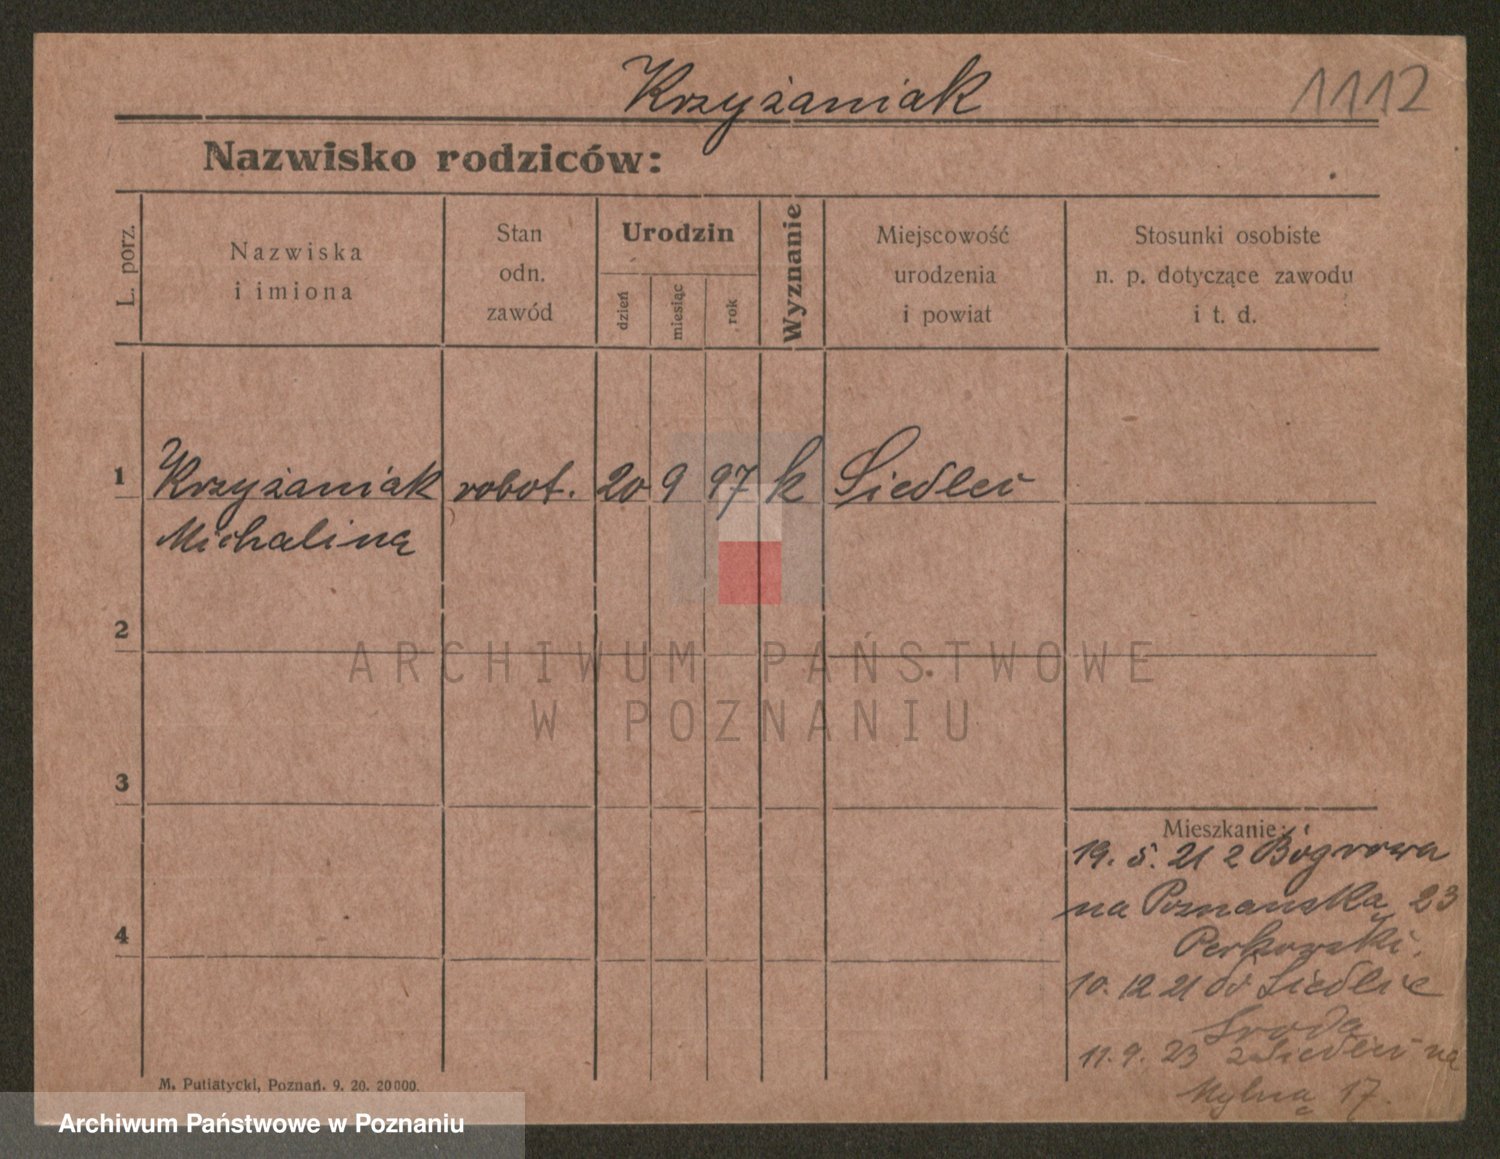 Krzyżaniak
1112
Nazwisko rodziców:
L. porz.
Nazwiska
i imiona
Stan
odn.
zawód
Urodzin
dzień
miesiąc
rok
Wyznanie
Miejscowość
urodzenia
i powiat
Stosunki osobiste
n. p. dotyczące zawodu
i t. d.
1
Krzyżaniak robot. 20 9 97 k Siedlec
Michalina
2
ARCHIWUM PAŃSTWOWE
W POZNANIU
3
Mieszkanie:
19. 5. 21 z
na Poznańską 23
Perkowski.
10. 12 21 do Siedlec
Środa
11. 9. 23 z Siedlec na
Mylną 17.
4
M. Putiatycki, Poznań. 9. 20. 20 000.
Archiwum Państwowe w Poznaniu